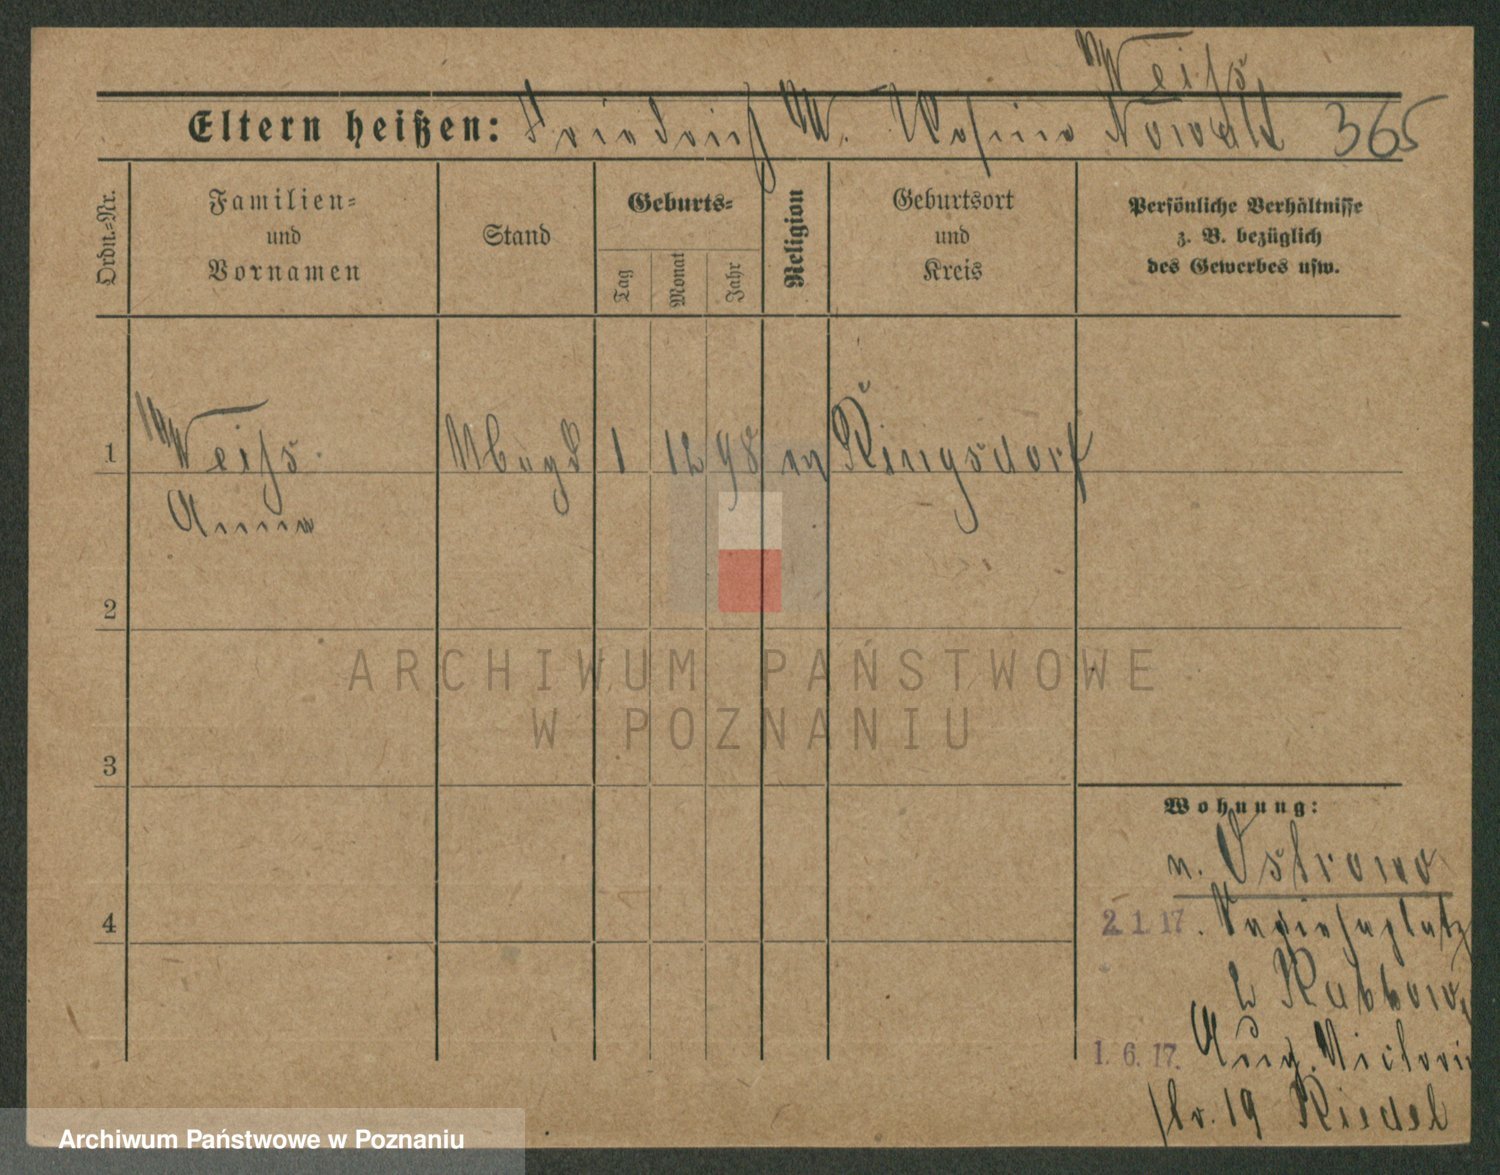 Weiß
Eltern heißen: Friedrich W. Rosina Nowak 365
Ordn.-Nr.
Familien-
und
Vornamen
Stand
Geburts-
Tag
Monat
Jahr
Religion
Geburtsort
und
Kreis
Persönliche Verhältnisse
z. B. bezüglich
des Gewerbes usw.
1 Weiß. 1 12 98 Ringsdorf
Anna
2
ARCHIWUM PAŃSTWOWE
W POZNANIU
3
Wohnung:
n. Ostrowo
4
2. 1. 17.
1. 6. 17. Aug. Victoria
str. 19 Riedel
Archiwum Państwowe w Poznaniu